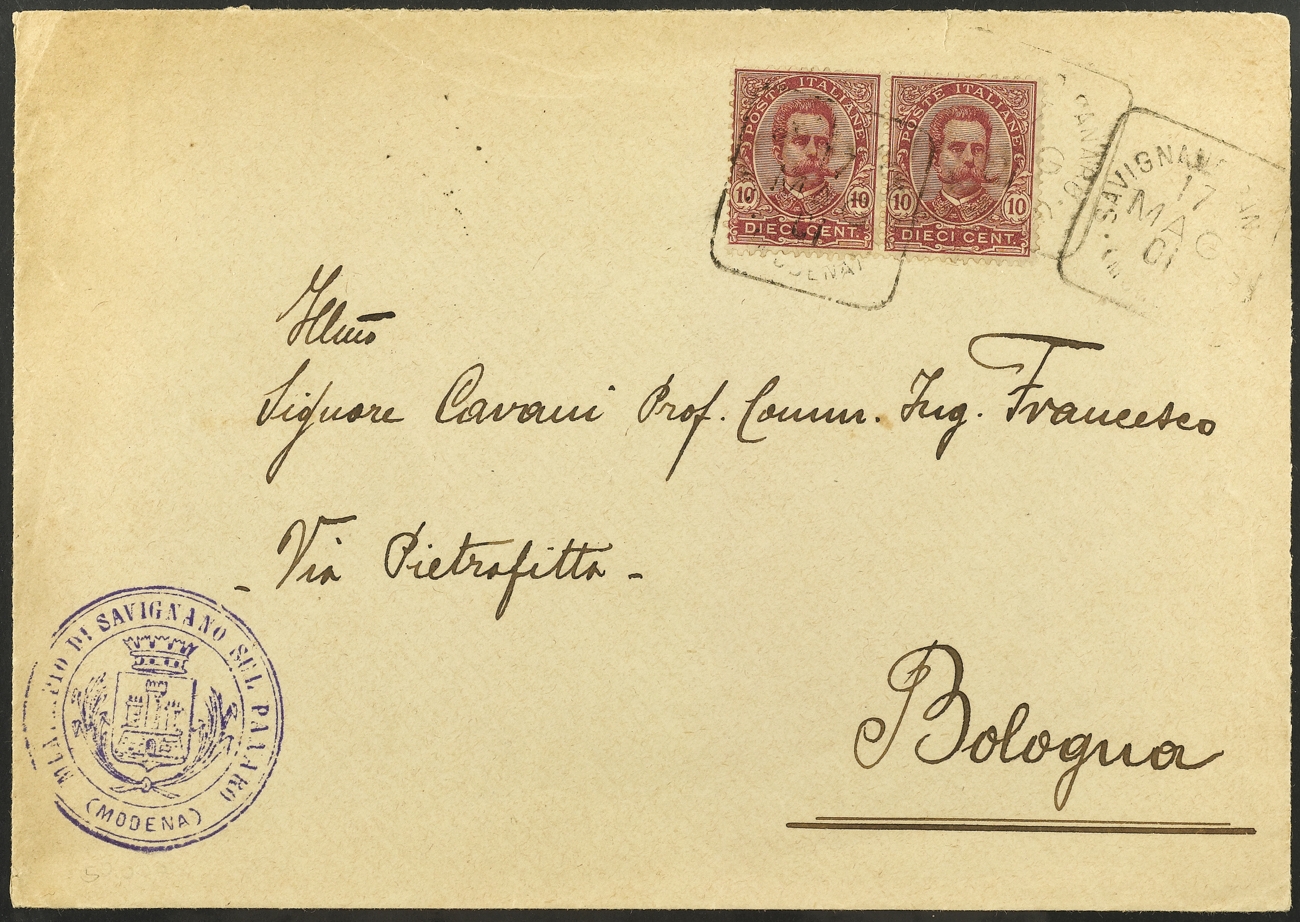 POSTE ITALIANE
10 10
DIECI CENT.
POSTE ITALIANE
10 10
DIECI CENT.
17
MAG
01
Illmo
Signore Cavani Prof. Comm. Ing. Francesco
- Via Pietrafitta -
Bologna
DI SAVIGNANO SUL PANARO
(MODENA)